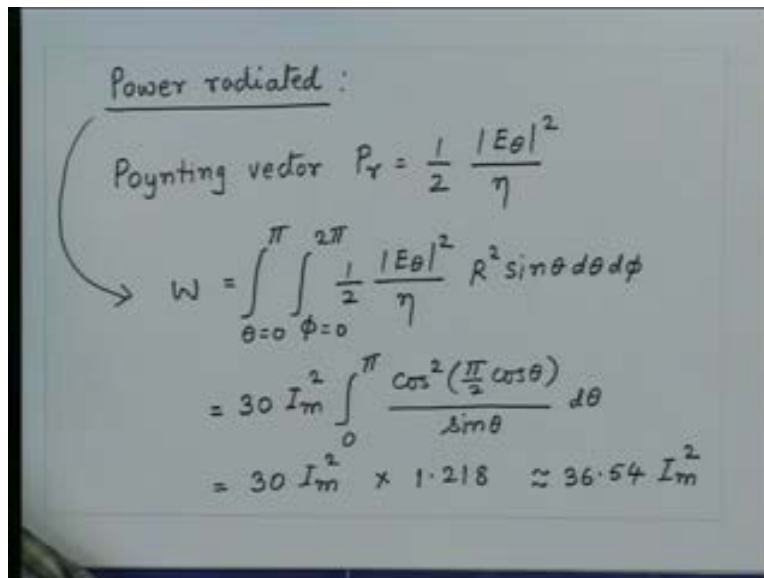 Power radiated :
Poynting vector P_r = 1/2 |E_θ|^2/η
W = ∫_{θ=0}^{π} ∫_{φ=0}^{2π} 1/2 |E_θ|^2/η R^2 sinθ dθ dφ
= 30 I_m^2 ∫_0^π cos^2(π/2 cosθ)/sinθ dθ
= 30 I_m^2 × 1.218 ≈ 36.54 I_m^2